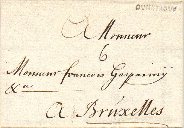 DUNKERQUE
A Monsieur
6
Monsieur francois Gasparinij
&a
A Bruxelles